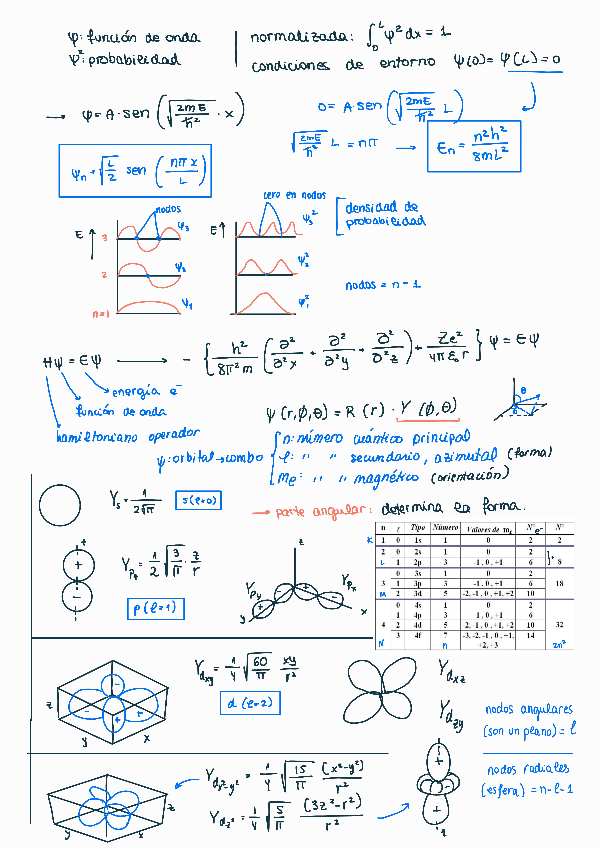 φ: función de onda
φ²: probabilidad
normalizada: ∫₀ᴸ φ² dx = 1
condiciones de entorno ψ(0) = ψ(L) = 0
→ φ = A · sen (√(2mE/ħ²) · x)
0 = A · sen (√(2mE/ħ²) L)
√(2mE/ħ²) L = nπ → En = n²h²/8mL²
ψn = √(L/2) sen (nπx/L)
nodos
cero en nodos
E
3
2
n=1
ψ3
ψ2
ψ1
E
ψ3²
ψ2²
ψ1²
densidad de
probabilidad
nodos = n - 1
Hψ = Eψ → - { h²/8π²m (∂²/∂²x + ∂²/∂²y + ∂²/∂²z) + Ze²/4πε₀r } ψ = Eψ
energía e⁻
función de onda
hamiltoniano operador
ψ(r,φ,θ) = R(r) · Y(φ,θ)
ψ: orbital → combo
n: número cuántico principal
l: " " secundario, azimutal (forma)
ml: " " magnético (orientación)
→ parte angular: determina la forma.
Ys = 1/2√π
s (l=0)
z
+
-
Ypz = 1/2 √(3/π) z/r
p (l=1)
z
Ypy
Ypx
y
x
n l Tipo Número Valores de ml Nº e⁻ Nº
K 1 0 1s 1 0 2 2
2 0 2s 1 0 2
L 1 2p 3 -1, 0, +1 6 8
0 3s 1 0 2
3 1 3p 3 -1, 0, +1 6 18
M 2 3d 5 -2, -1, 0, +1, +2 10
0 4s 1 0 2
1 4p 3 -1, 0, +1 6
4 2 4d 5 -2, -1, 0, +1, +2 10 32
3 4f 7 -3, -2, -1, 0, +1, +2, +3 14
N n 2n²
z
y
x
Ydxy = 1/4 √(60/π) xy/r²
d (l=2)
Ydxz
Ydzy
nodos angulares
(son un plano) = l
nodos radiales
(esfera) = n-l-1
z
y
x
Ydx²-y² = 1/4 √(15/π) (x²-y²)/r²
Ydz² = 1/4 √(5/π) (3z²-r²)/r²
+
-
+
z